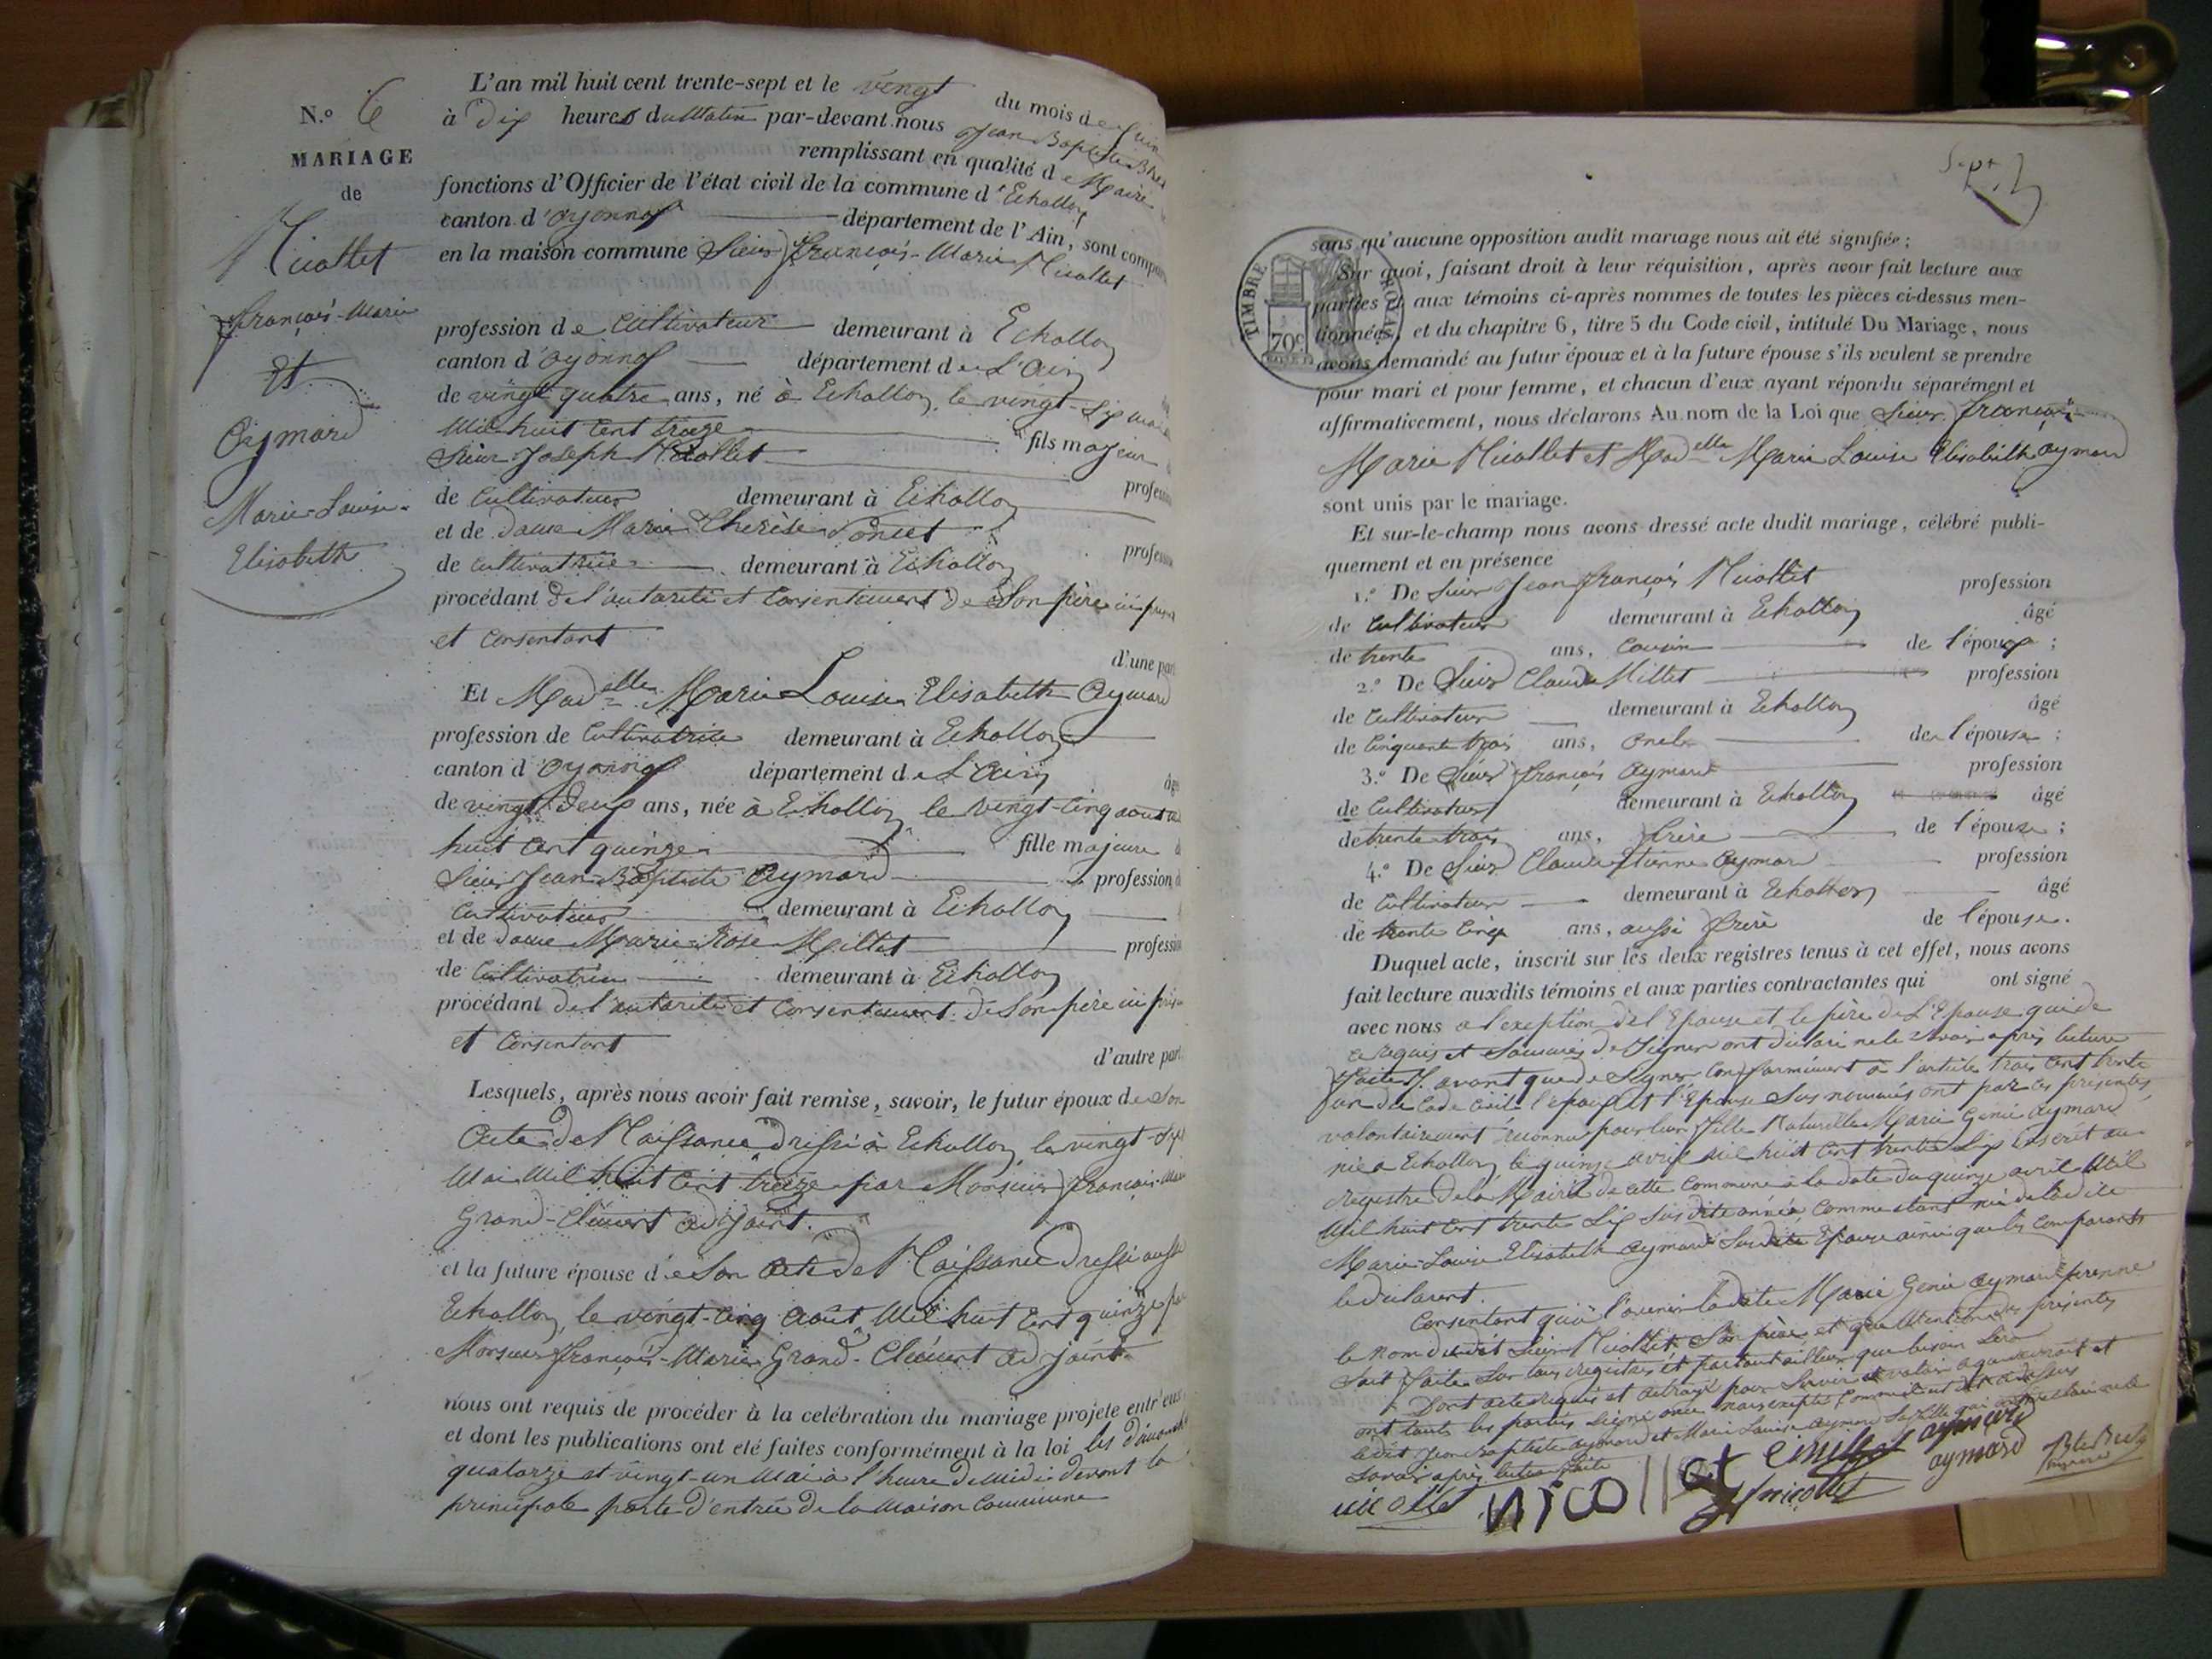 N.º 6
MARIAGE
de
Nicollet
françois-Marie
Et
Aymard
Marie-Louise-
Elisabeth
L'an mil huit cent trente-sept et le vingt du mois de Juin
à Dix heures du Matin par-devant nous Jean Baptiste
remplissant en qualité de Maire
fonctions d'Officier de l'état civil de la commune d'Echallon
canton d'oyonnax département de l'Ain, sont compar
en la maison commune Sieur françois-Marie Nicollet
profession de Cultivateur demeurant à Echallon
canton d'oyonnax département de L'Ain
de vingt quatre ans, né à Echallon, le vingt-Six mai
Mil huit Cent treize fils majeur d
Sieur Joseph Nicollet
profession
de Cultivateur demeurant à Echallon
et de Dame Marie Therèse Poncet
profession
de Cultivatrice demeurant à Echallon
procédant de l'autorité et Consentement de Son père ici présent
et Consentant
d'une part
Et Mad.elle Marie Louise Elisabeth Aymard
profession de Cultivatrice demeurant à Echallon
canton d'oyonnax département de L'Ain
âgé
de vingt-Deux ans, née à Echallon le vingt-Cinq aout mil
huit Cent quinze fille majeure d
Sieur Jean-Baptiste Aymard profession d
Cultivateur demeurant à Echallon
et de Dame Marie-Rose Millet profession
de Cultivatrice demeurant à Echallon
procédant de l'autorité et Consentement de Son père ici présent
et Consentant
d'autre part
Lesquels, après nous avoir fait remise, savoir, le futur époux de Son
Acte de Naissance Dressé à Echallon le vingt-Six
Mai Mil huit Cent treize par Monsieur françois-Marie
Grand-Clément adjoint.
et la future épouse de Son Acte de Naissance Dressé aussi
Echallon, le vingt-Cinq Août Mil huit Cent quinze par
Monsieur françois-Marie Grand-Clément adjoint
nous ont requis de procéder à la celébration du mariage projete entr'eux
et dont les publications ont eté faites conformément à la loi les dimanches
quatorze et vingt-un Mai à l'heure de Midi devant la
principale porte d'entrée de la Maison Commune
Sept
TIMBRE ROYAL
70c
sans qu'aucune opposition audit mariage nous ait été signifiée;
Sur quoi, faisant droit à leur réquisition, après avoir fait lecture aux
parties et aux témoins ci-après nommes de toutes les pièces ci-dessus men-
tionnées, et du chapitre 6, titre 5 du Code civil, intitulé Du Mariage, nous
avons demandé au futur époux et à la future épouse s'ils veulent se prendre
pour mari et pour femme, et chacun d'eux ayant répondu séparément et
affirmativement, nous déclarons Au nom de la Loi que Sieur françois
Marie Nicollet et Mad.elle Marie Louise Elisabeth aymard
sont unis par le mariage.
Et sur-le-champ nous avons dressé acte dudit mariage, célébré publi-
quement et en présence
1.º De Sieur Jean françois Nicollet profession
de Cultivateur demeurant à Echallon âgé
de trente ans, Cousin de l'époux;
2.º De Sieur Claude Millet profession
de Cultivateur demeurant à Echallon âgé
de Cinquante trois ans, oncle de l'épouse;
3.º De Sieur françois Aymard profession
de Cultivateur demeurant à Echallon âgé
de trente trois ans, frère de l'épouse;
4.º De Sieur Claude Etienne Aymard profession
de Cultivateur demeurant à Echallon âgé
de trente Cinq ans, aussi frère de l'épouse.
Duquel acte, inscrit sur les deux registres tenus à cet effet, nous avons
fait lecture auxdits témoins et aux parties contractantes qui ont signé
avec nous a l'exeption de l'Epouse et le père de L'Epouse qui de
ce requis et Sommés de Signer ont déclaré ne le Savoir après lecture
faite. avant que de Signer Conformément à l'article trois Cent trente
un du Code Civil l'époux et l'Epouse Sus nommés ont par ces présentes
volontairement reconnu pour leur fille Naturelle Marie Genie Aymard
née à Echallon le quinze avril mil huit Cent trente Six inscrit au
Registre de la Mairie de cette Commune à la date du quinze avril Mil
Mil huit Cent trente Six Sus dite année Comme étant née de ladite
Marie-Louise Elisabeth Aymard Susdite Epouse ainsi que les Comparants
le déclarent.
Consentant qu'à l'avenir ladite Marie Genie Aymard prenne
le Nom dudit Sieur Nicollet, Son père et que Mention des présentes
Soit faite Sur tous registres et partout ailleurs que besoin Sera
Dont acte requis et octroyé pour Servir et valoir
ont toutes les parties Signé avec nous excepté
ledit Jean Baptiste Aymard et Marie Louise Aymard Sa fille qui
Savoir après lecture faite
nicollet nicollet Cmillet aymard
jf nicollet aymard